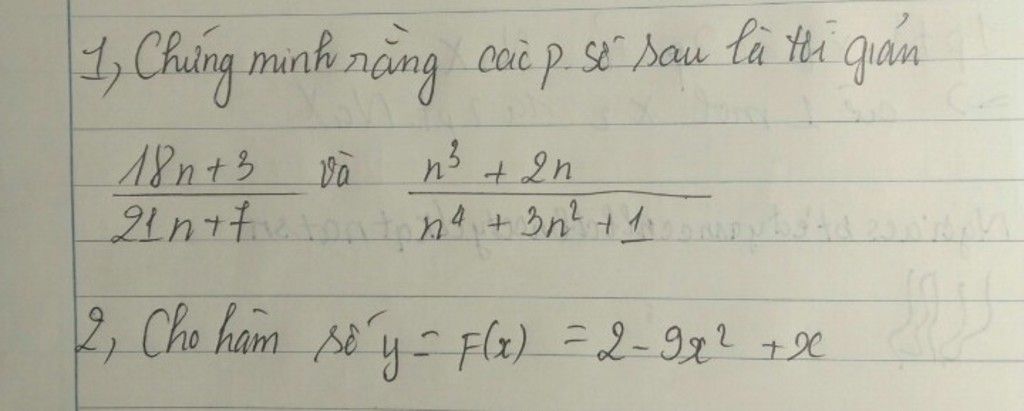 1, Chứng minh rằng các p. số sau là tối giản
18n + 3 / 21n + 7 và n³ + 2n / n⁴ + 3n² + 1
2, Cho hàm số y = F(x) = 2 - 9x² + x